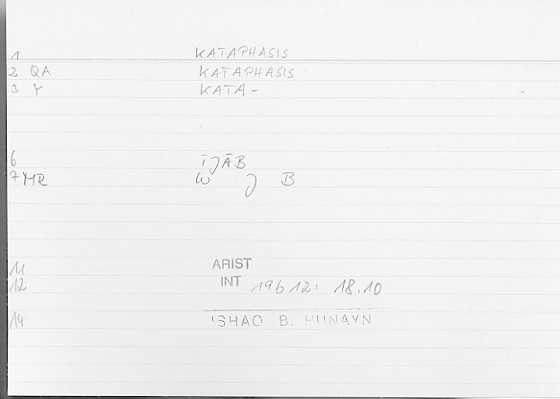 1 KATAPHASIS
2 QA KATAPHASIS
3 Y KATA-
6 ĪJĀB
7 MR W J B
11 ARIST
12 INT 19612. 18.10
14 ISHAQ B. HUNAYN